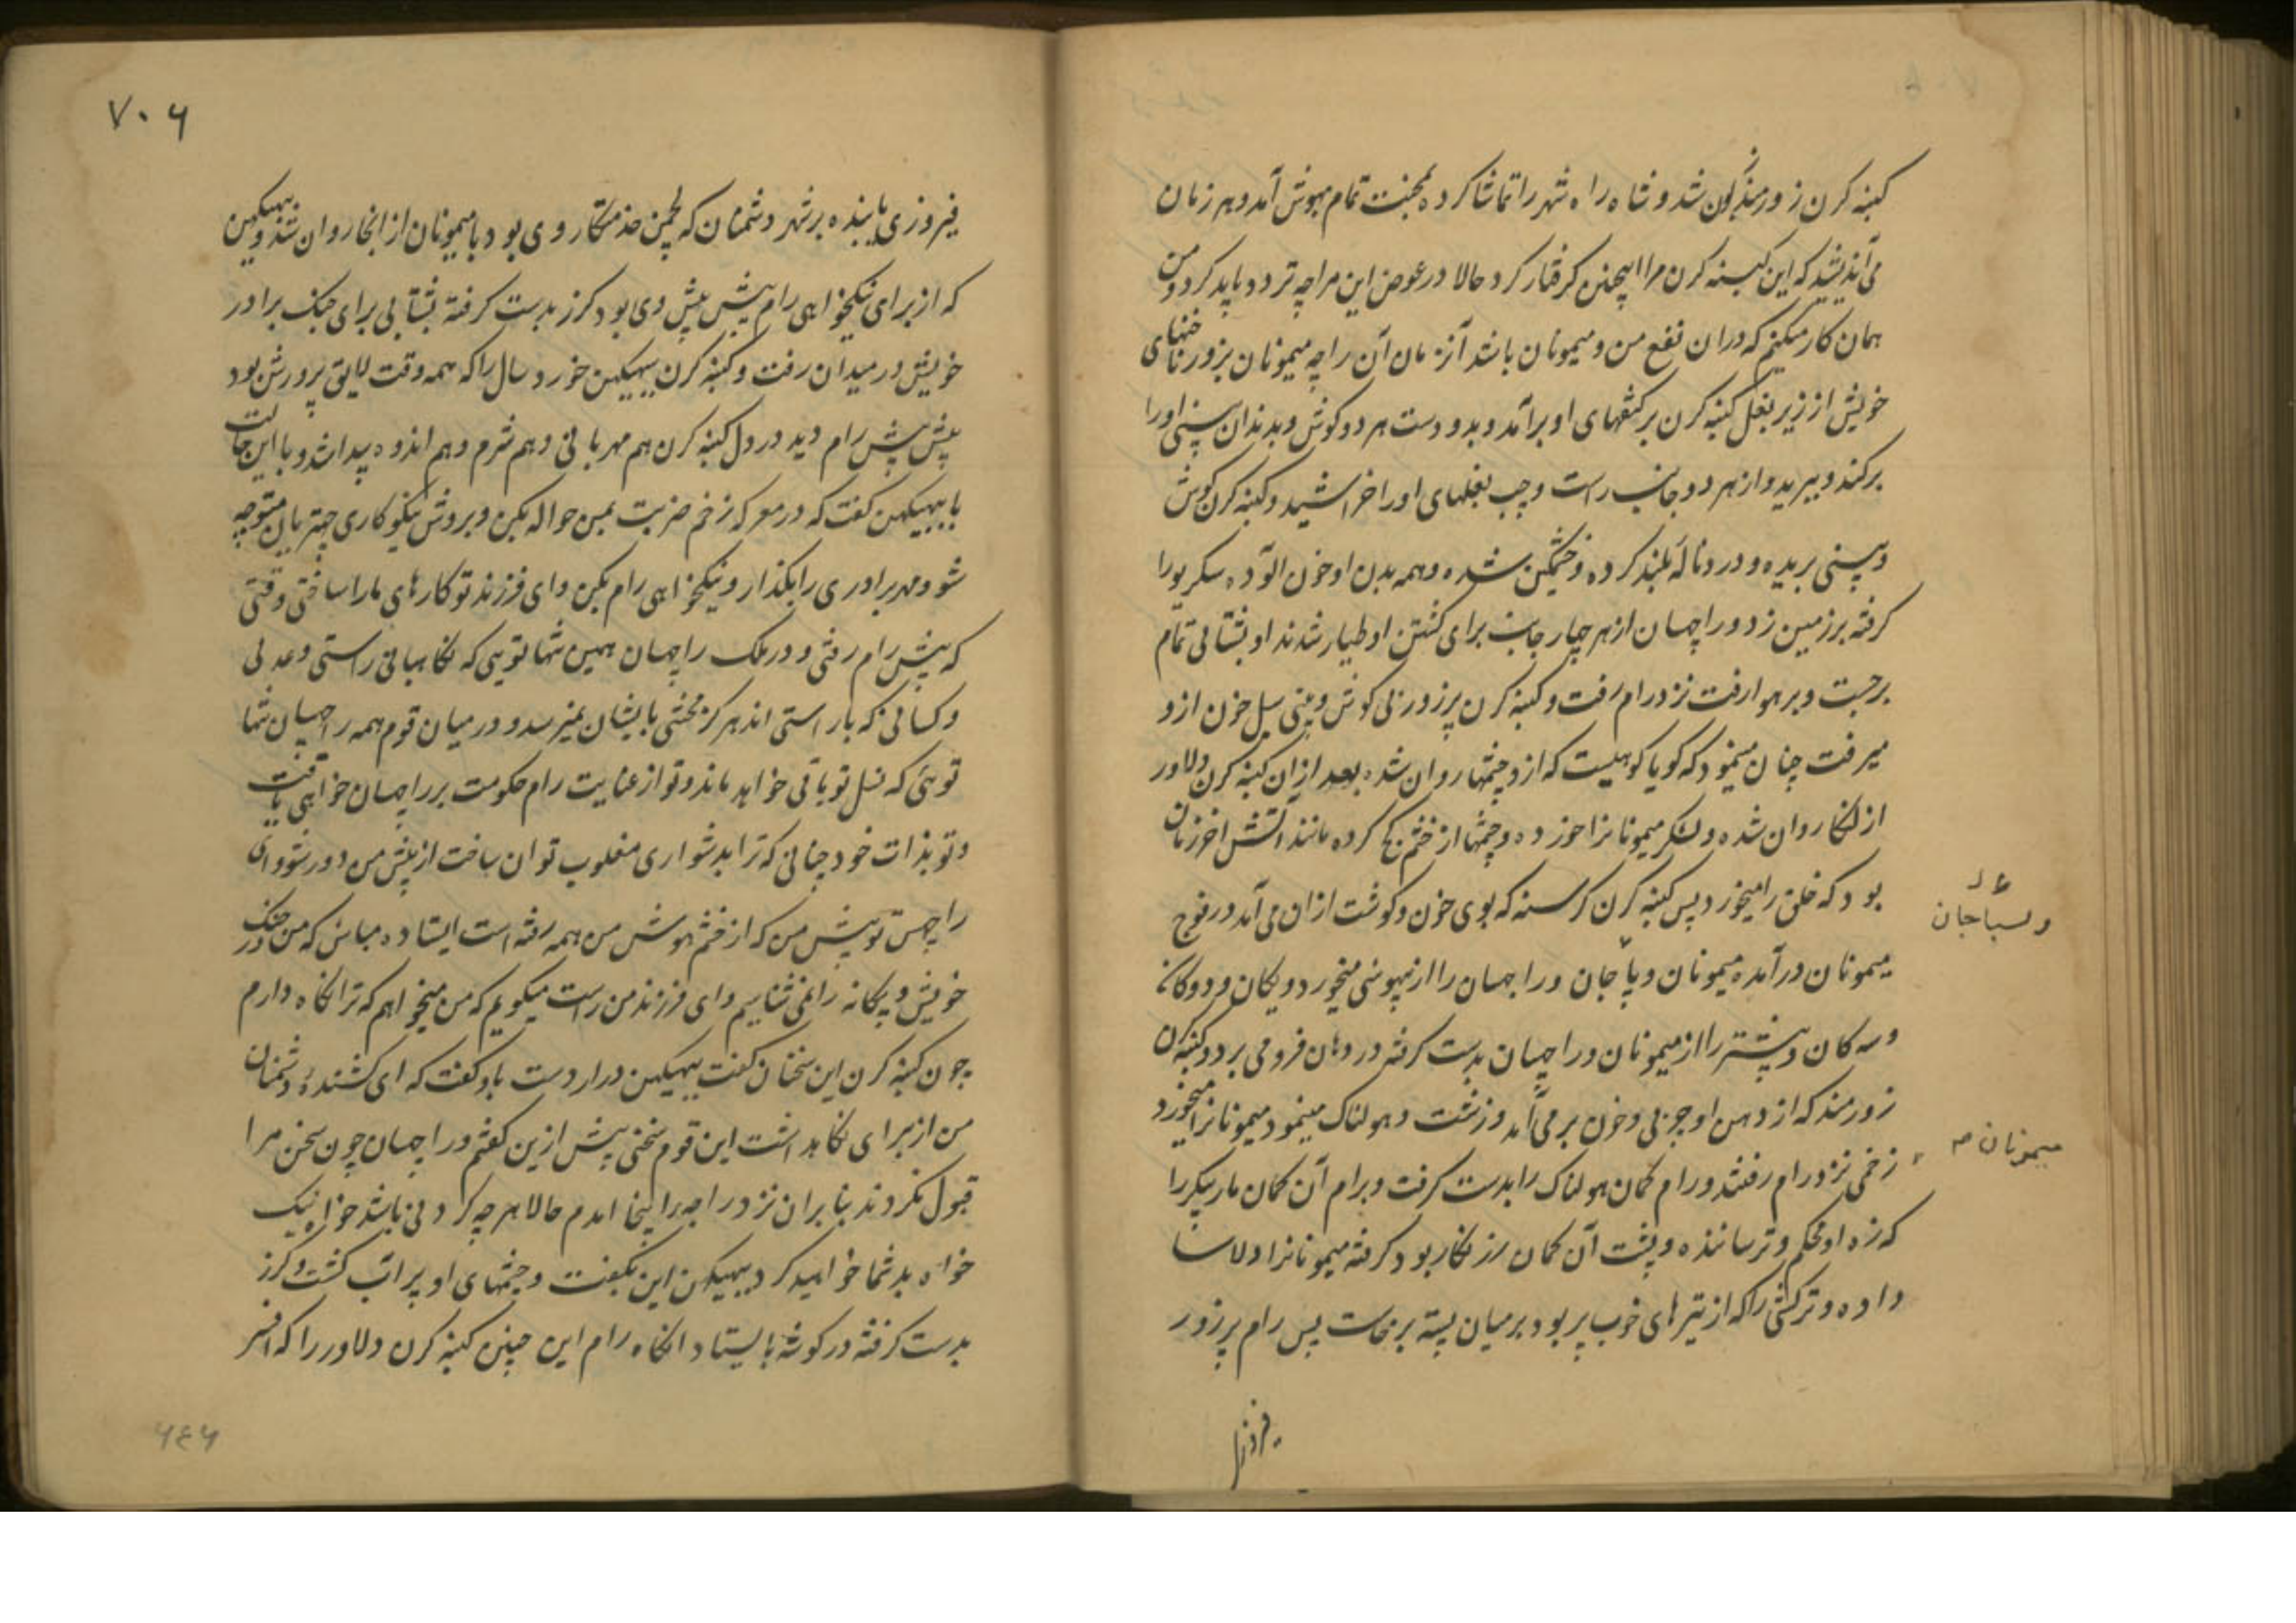 کنبه کرن زورمند نگون شد و شاه راه شهر را تماشا کرده بمحنت تمام بهوش آمد و هر زمان
می اندیشید که این کنبه کرن مرا اینچنین گرفتار کرد حالا در عوض این مرا چه تردد باید کرد و من
همان کار میکنم که دران نفع من و میمونان باشد آنزمان آن راجه میمونان بزور ناخنهای
خویش از زیر بغل کنبه کرن بر کتفهای او برآمد و بدو دست هر دو کوش و بدندان بینی او را
برکند و ببرید و از هر دو جانب راست و چپ بغلهای او را خراشید و کنبه کرن کوش
و بینی بریده و درد ناله بلند کرده و خشمگین شده و همه بدن او خون الوده سکریو را
کرفته بر زمین زد و راچهسان از هر چهار جانب برای کشتن او طیار شدند او بشتابی تمام
برجست و بر هوا رفت نزد رام رفت و کنبه کرن پرزور بی کوش و بینی سیل خون ازو
میرفت چنان مینمود که کویا کوهیست که ازو چشمها روان شده بعد ازان کنبه کرن دلاور
از لنکا روان شده و لشکر میمونانرا خورده و چشمها از خشم کج کرده مانند آتش اخر زمان
بود که خلق را میخورد پس کنبه کرن کرسنه که بوی خون و کوشت ازان می آمد در فوج
میمونان درآمده میمونان و پاچان و راچهسان را از بیهوشی میخورد و یکان و دوکان
و سه کان و بیشتر را از میمونان و راچهسان بدست کرفته در دهان فرو می برد و کنبه کرن
زورمند که از دهن او چربی و خون برمی آمد و زشت و هولناک مینمود میمونانرا میخورد
زخمی نزد رام رفتند و رام کمان هولناک را بدست کرفت و برام آن کمان مار پیکر را
که زه او محکم و ترساننده و پشت آن کمان زرنکار بود کرفته میمونانرا دلاسا
داده و ترکشی را که از تیرهای خوب پر بود بر میان بسته برخاست پس رام پرزور
و لسباجان
میمونان
۷۰۶
فیروزی یابنده بر شهر دشمنان که لچهمن خدمتکار وی بود با میمونان از انجا روان شد و ببهیکهن
که از برای نیکخواهی رام پیش پیش وی بود کرز بدست کرفته بشتابی برای جنک برادر
خویش در میدان رفت و کنبه کرن ببهیکهن خورد سال را که همه وقت لایق پرورش بود
پیش پیش رام دید در دل کنبه کرن هم مهربانی و هم شرم و هم اندوه پیدا شد و با این حالت
با ببهیکهن کفت که در معرکه زخم ضربت بمن حواله بکن و بروش نیکوکاری چتریان متوجه
شو و مهر برادری را بکذار و نیکخواهی رام بکن و ای فرزند تو کارهای ما را ساختی وقتی
که پیش رام رفتی و در ملک راچهسان همین تنها تویی که نکاهبانی راستی و عدلی
و کسانی که با راستی اند هرکز محنتی بایشان نمیرسد و در میان قوم همه راچهسان تنها
توئی که نسل تو باقی خواهد ماند و تو از عنایت رام حکومت بر راچهسان خواهی یافت
و تو بذات خود چنانی که ترا بدشواری مغلوب توان ساخت از پیش من دور شو و ای
راچهس تو پیش من که از خشم هوش من همه رفته است ایستاده مباش که من در جنک
خویش و بیکانه را نمی شناسم و ای فرزند من راست میکویم که من میخواهم که ترا نکاه دارم
چون کنبه کرن این سخنان کفت ببهیکهن دراز دست باو کفت که ای کشنده دشمنان
من از برای نکاهداشت این قوم سخنی پیش ازین کفتم و راچهسان چون سخن مرا
قبول نکردند بنابران نزد رام اینجا امدم حالا هر چه کردنی باشد خواه نیک
خواه بد شما خواهید کرد ببهیکهن این بکفت و چشمهای او پر اب کشت و کرز
بدست کرفته در کوشه بایستاد انکاه رام این چنین کنبه کرن دلاور را که افسر
۶۴۶